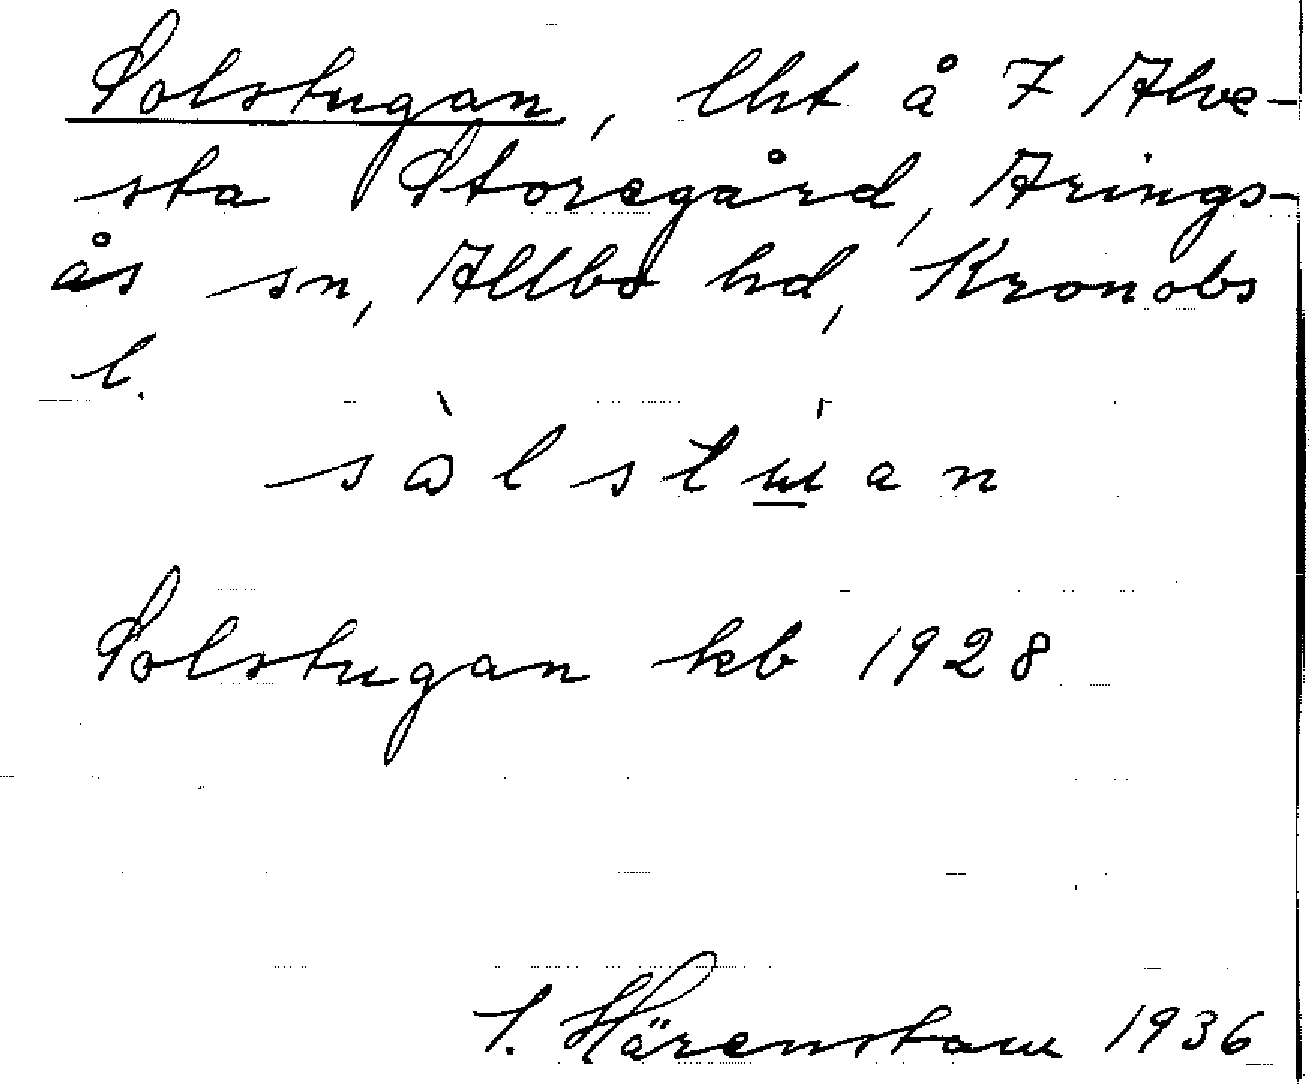 Solstugan, lht å 7 Alve-
sta Storegård, Arings-
ås sn, Allbo hd, Kronobs
l.
sàlstú̲an
Solstugan kb 1928
S. Härenstam 1936